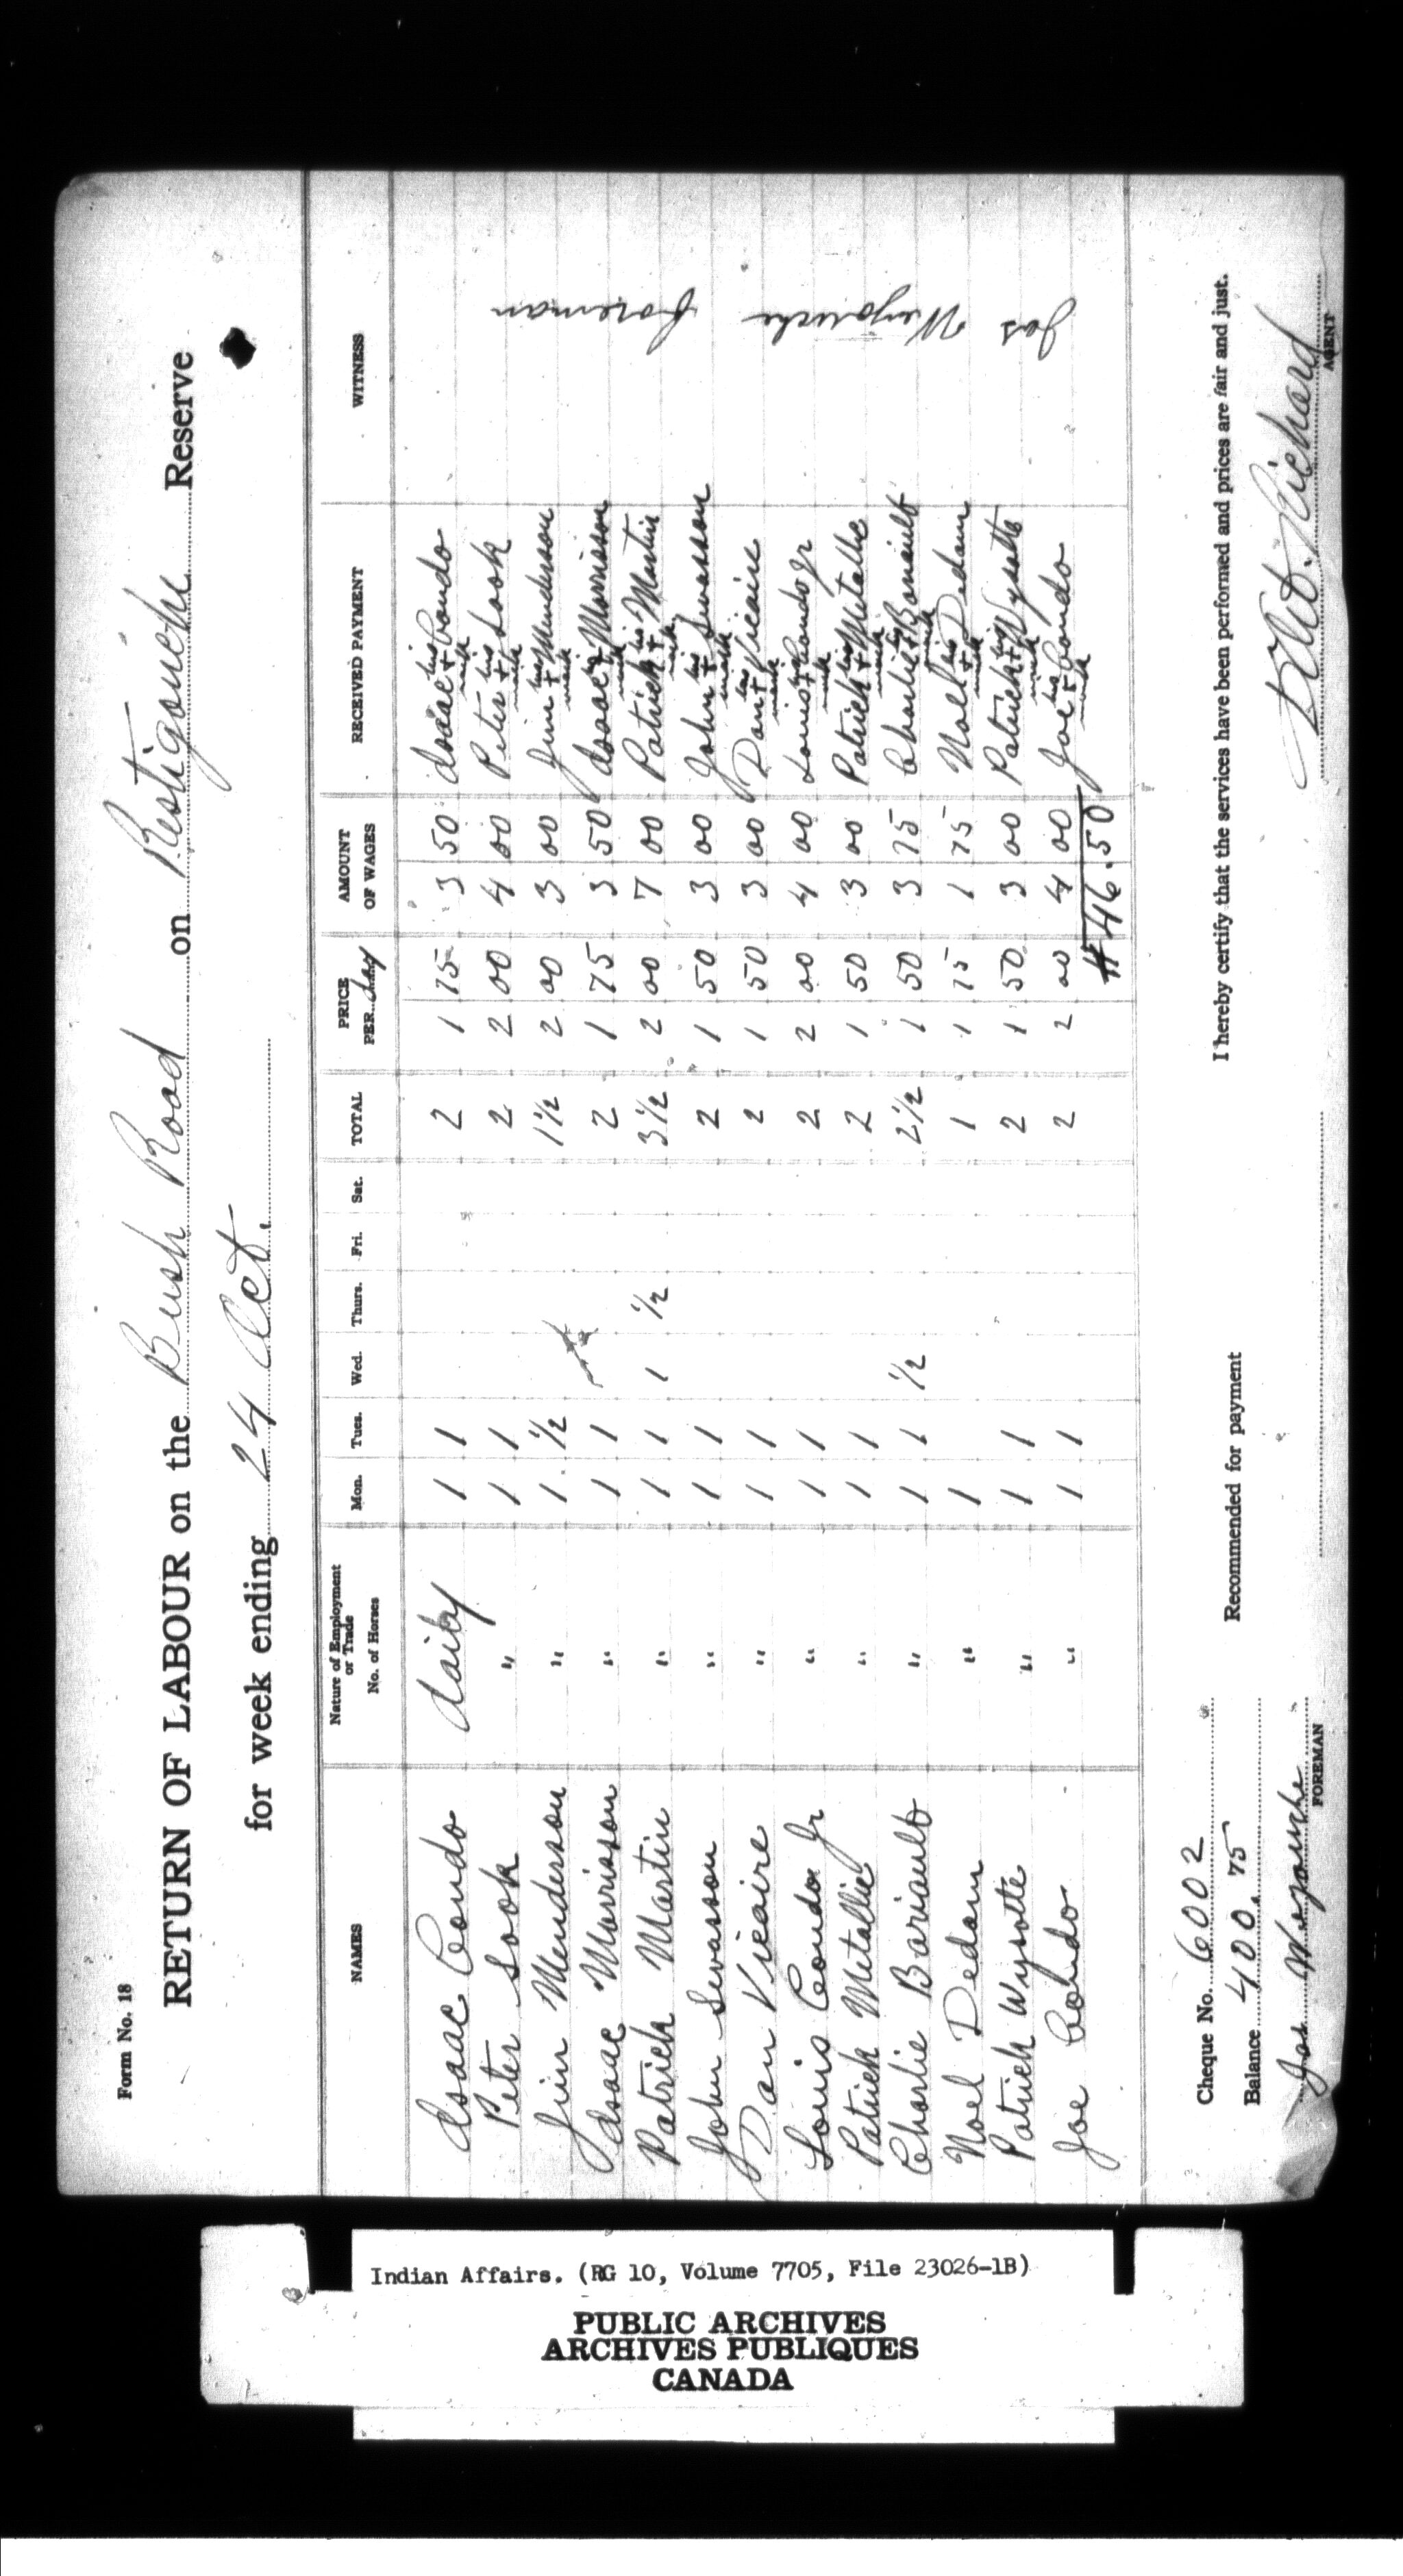 Form No. 18
RETURN OF LABOUR on the Bush Road on Restigouche Reserve
for week ending 24 Oct.
NAMES Nature of Employment or Trade No. of Horses Mon. Tues. Wed. Thurs. Fri. Sat. TOTAL PRICE PER day AMOUNT OF WAGES RECEIVED PAYMENT WITNESS
Isaac Condo daily 1 1 2 1 75 3 50 Isaac his + mark Condo
Peter Sook " 1 1 2 2 00 4 00 Peter his + mark Sook
Jim Menderson " 1 1/2 1 1/2 2 00 3 00 Jim his + mark Menderson
Isaac Morrisson " 1 1 2 1 75 3 50 Isaac his + mark Morrisson
Patrick Martin " 1 1 1 1/2 3 1/2 2 00 7 00 Patrick his + mark Martin
John Swasson " 1 1 2 1 50 3 00 John his + mark Swasson
Dan Vicaire " 1 1 2 1 50 3 00 Dan his + mark Vicaire
Louis Condo Jr " 1 1 2 2 00 4 00 Louis his + mark Condo Jr
Patrick Metallic " 1 1 2 1 50 3 00 Patrick his + mark Metallic
Charlie Bariault " 1 1 1/2 2 1/2 1 50 3 75 Charlie his + mark Bariault
Noel Dedam " 1 1 1 75 1 75 Noel his + mark Dedam
Patrick Wysotte " 1 1 2 1 50 3 00 Patrick his + mark Wysotte
Joe Condo " 1 1 2 2 00 4 00 Joe his + mark Condo
$46.50
Jos Wejouche foreman
Cheque No. 6002
I hereby certify that the services have been performed and prices are fair and just.
Balance 400.75 Recommended for payment
Jos Wejouche
Richard
FOREMAN AGENT
Indian Affairs. (RG 10, Volume 7705, File 23026-1B)
PUBLIC ARCHIVES
ARCHIVES PUBLIQUES
CANADA